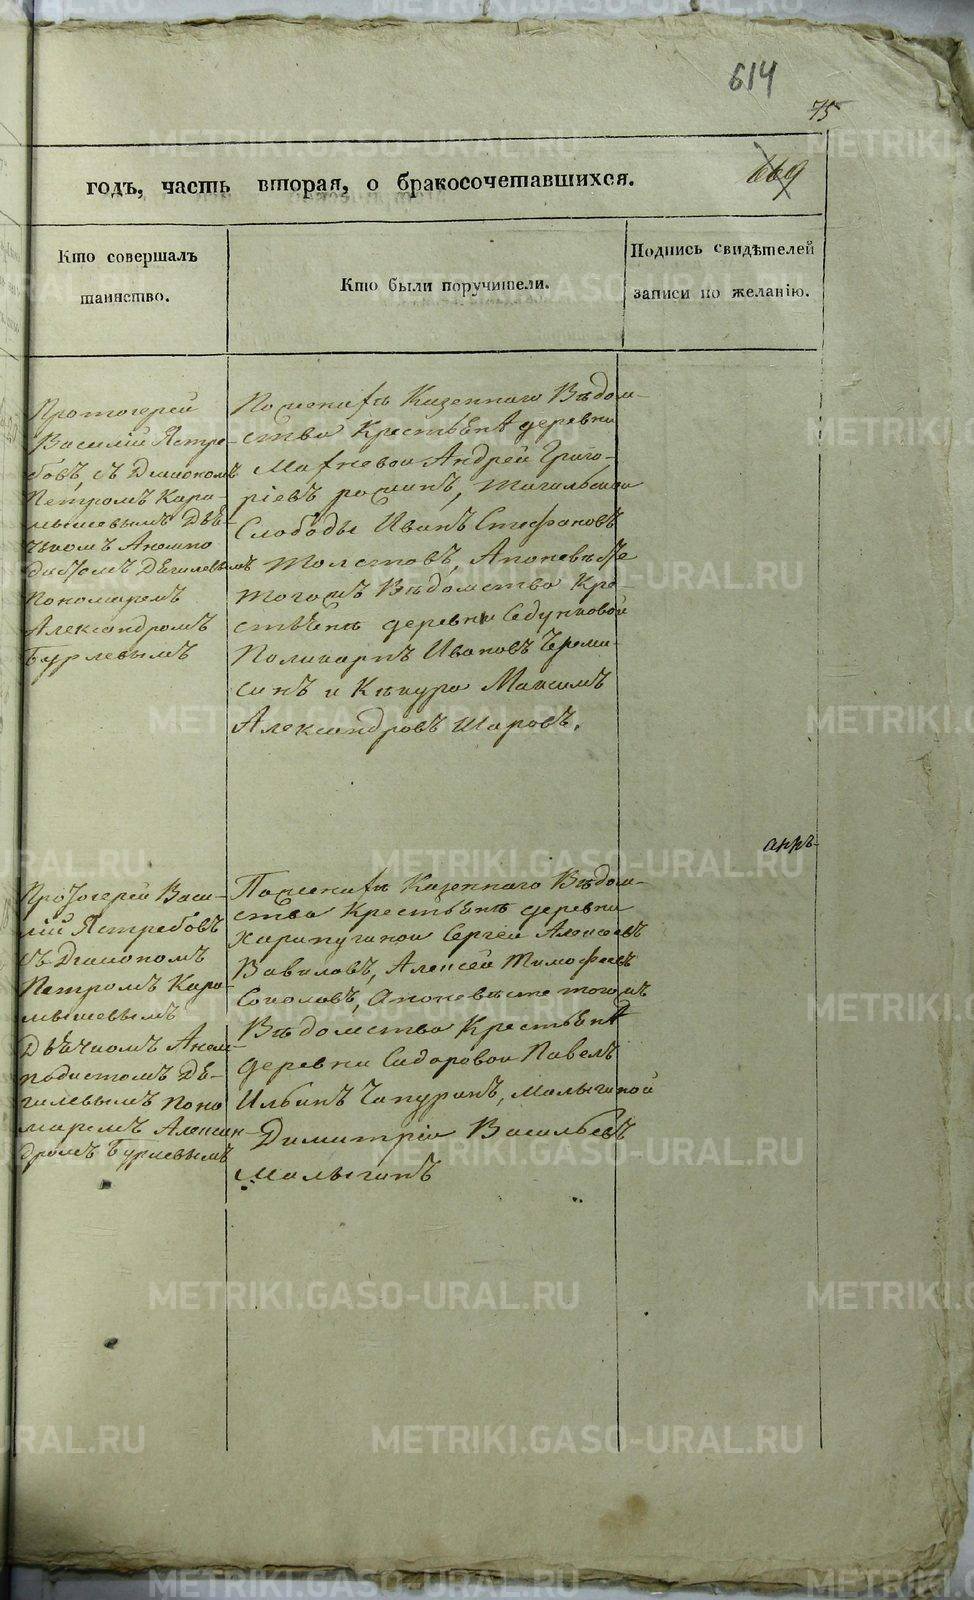 614
75
669
годъ, часть вторая, о бракосочетавшихся.
Кто совершалъ
таинство.
Кто были поручители.
Подпись свидѣтелей
записи по желанію.
Протоіерей
Василій Ястре-
бовъ, съ Діакономъ
Петромъ Кара-
мышевымъ Дья-
чкомъ Анемпо
дистомъ Дѣгилевымъ
Пономаремъ
Александромъ
Бурлевымъ
По женихѣ Казеннаго Вѣдом-
ства Крестьянѣ деревни
Махневой Андрей Григо-
ріевъ, Тагильской
Слободы Иванъ Стефановъ
Толстовъ, А по невѣсте
тогожъ Вѣдомства Кре-
стьянѣ деревни
Поликарпъ Ивановъ Череми-
синъ и Максимъ
Александровъ Шаровъ.
Протоіерей Васи-
лій Ястребовъ
съ Діакономъ
Петромъ Кара-
мышевымъ
Дьячкомъ Анем-
подистомъ Дѣ-
гилевымъ Поно
маремъ Алексан-
дромъ Бурлевымъ
По женихѣ Казеннаго Вѣдом-
ства Крестьянѣ деревни
Сергей Алексеевъ
Вавиловъ, Алексей Тимофеевъ
Соколовъ, а по невѣсте тогожъ
Вѣдомства Крестьянѣ
деревни Сидоровой Павелъ
Ильинъ Чапуринъ, Малыгиной
Димитрій Васильевъ
Малыгинъ
METRIKI.GASO-URAL.RU